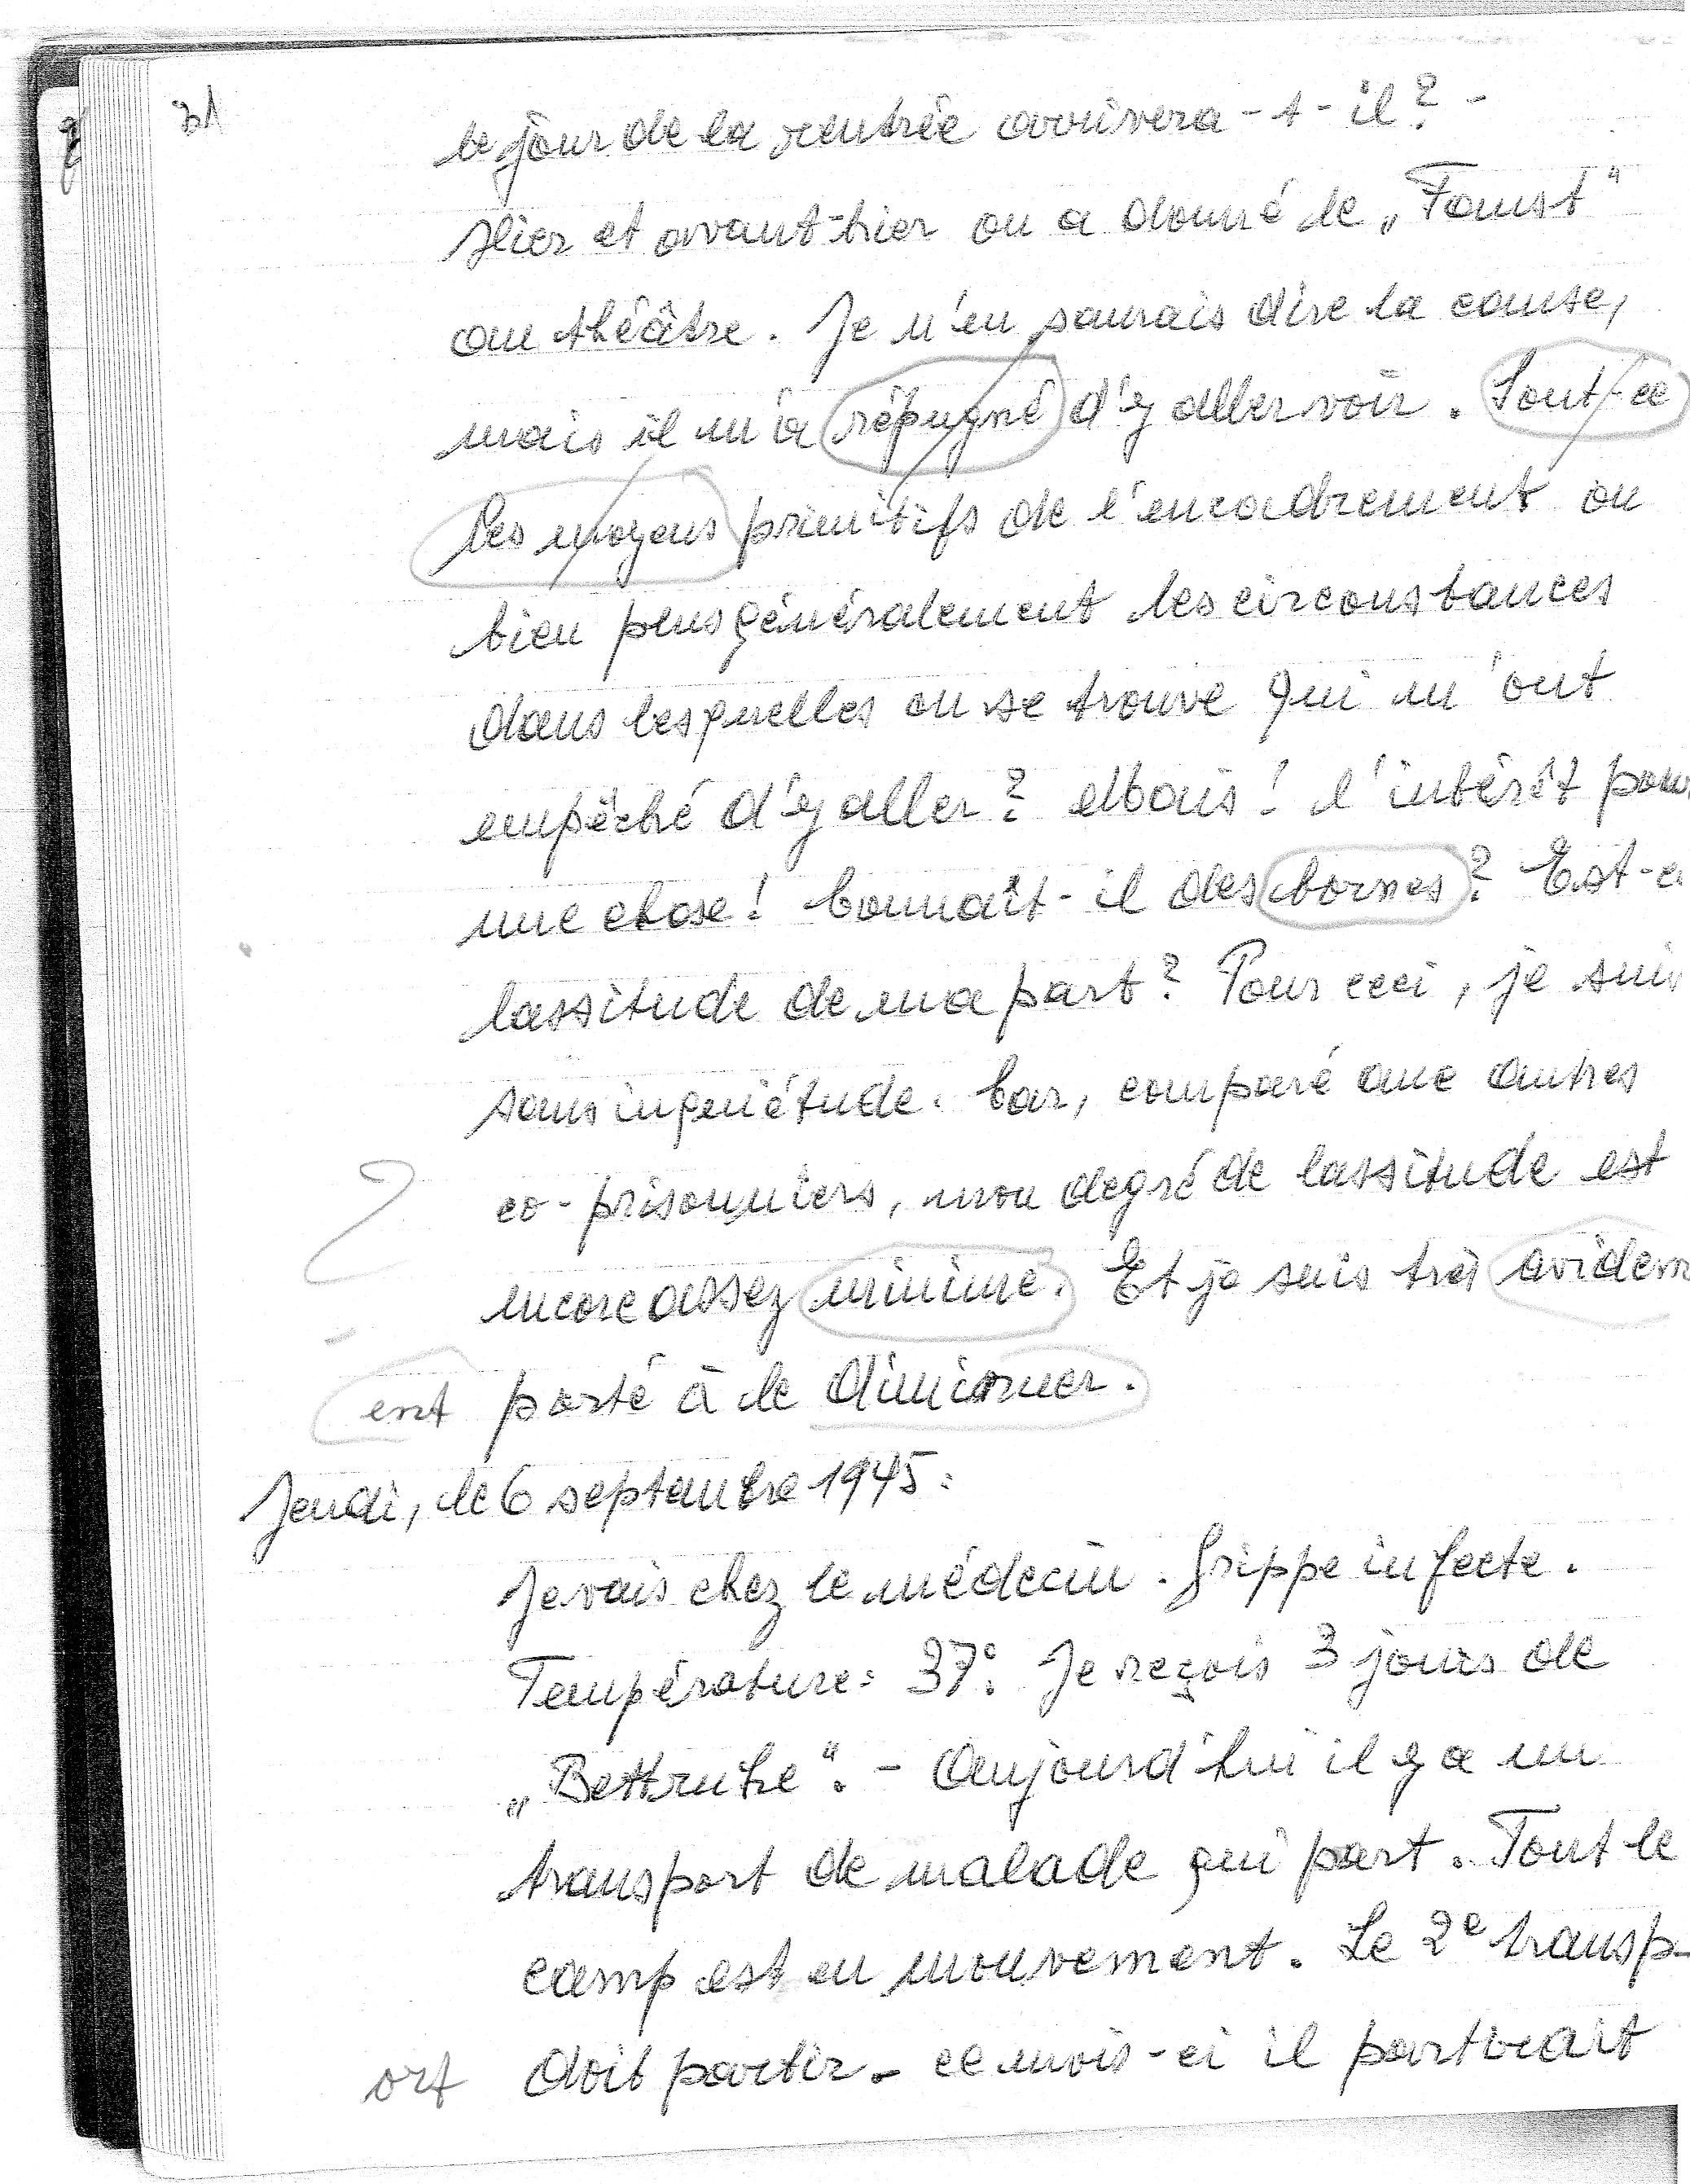 31
le jour de la rentrée arrivera-t-il? -
Hier et avant-hier on a donné le „Faust“
au théâtre. Je n'en saurais dire la cause,
mais il m'a répugné d'y aller voir. Sont-ce
les moyens primitifs de l'encadrement ou
bien plus généralement les circonstances
dans lesquelles on se trouve qui m'ont
empêché d'y aller? Mais! l'intérêt pour
une chose! Connaît-il des bornes? Est-ce
lassitude de ma part? Pour ceci, je suis
sans inquiétude. Car, comparé aux autres
co-prisonniers, mon degré de lassitude est
encore assez minime. Et je suis très avidem
ent porté à le diminuer.
Jeudi, le 6 septembre 1945:
Je vais chez le médecin. Grippe infecte.
Température: 37°. Je reçois 3 jours de
„Bettruhe“. - Aujourd'hui il y a un
transport de malade qui part. Tout le
camp est en mouvement. Le 2e transp-
ort doit partir. ce mois-ci il partirait